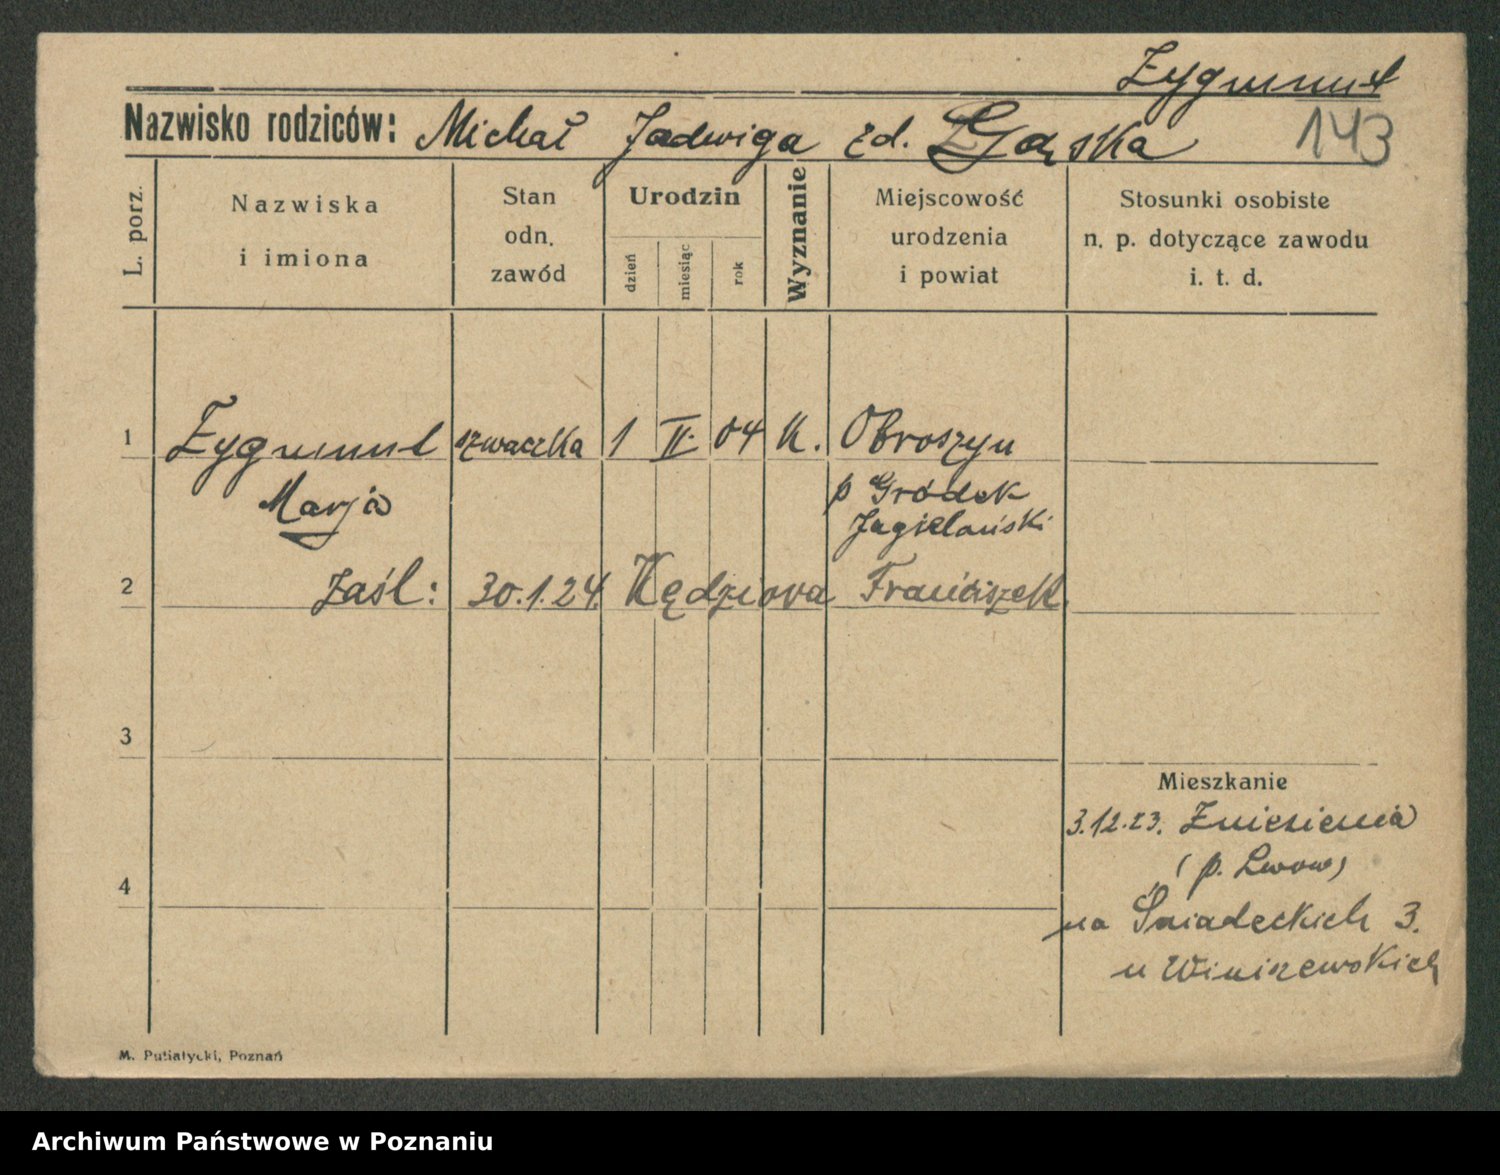 Zygmunt
Nazwisko rodziców: Michał Jadwiga zd.
143
L. porz.
Nazwiska
i imiona
Stan
odn.
zawód
Urodzin
dzień
miesiąc
rok
Wyznanie
Miejscowość
urodzenia
i powiat
Stosunki osobiste
n. p. dotyczące zawodu
i. t. d.
1 Zygmunt szwaczka 1 II. 04 K. Obroszyn
Marja p Gródek
Jagielański
2 zaśl: 30.1.24. Kędziora Franciszek.
3
Mieszkanie
3.12.23. Zniesienia
(p. Lwow)
4
na Śniadeckich 3.
u Winiszewskich
M. Putiatycki, Poznań
Archiwum Państwowe w Poznaniu